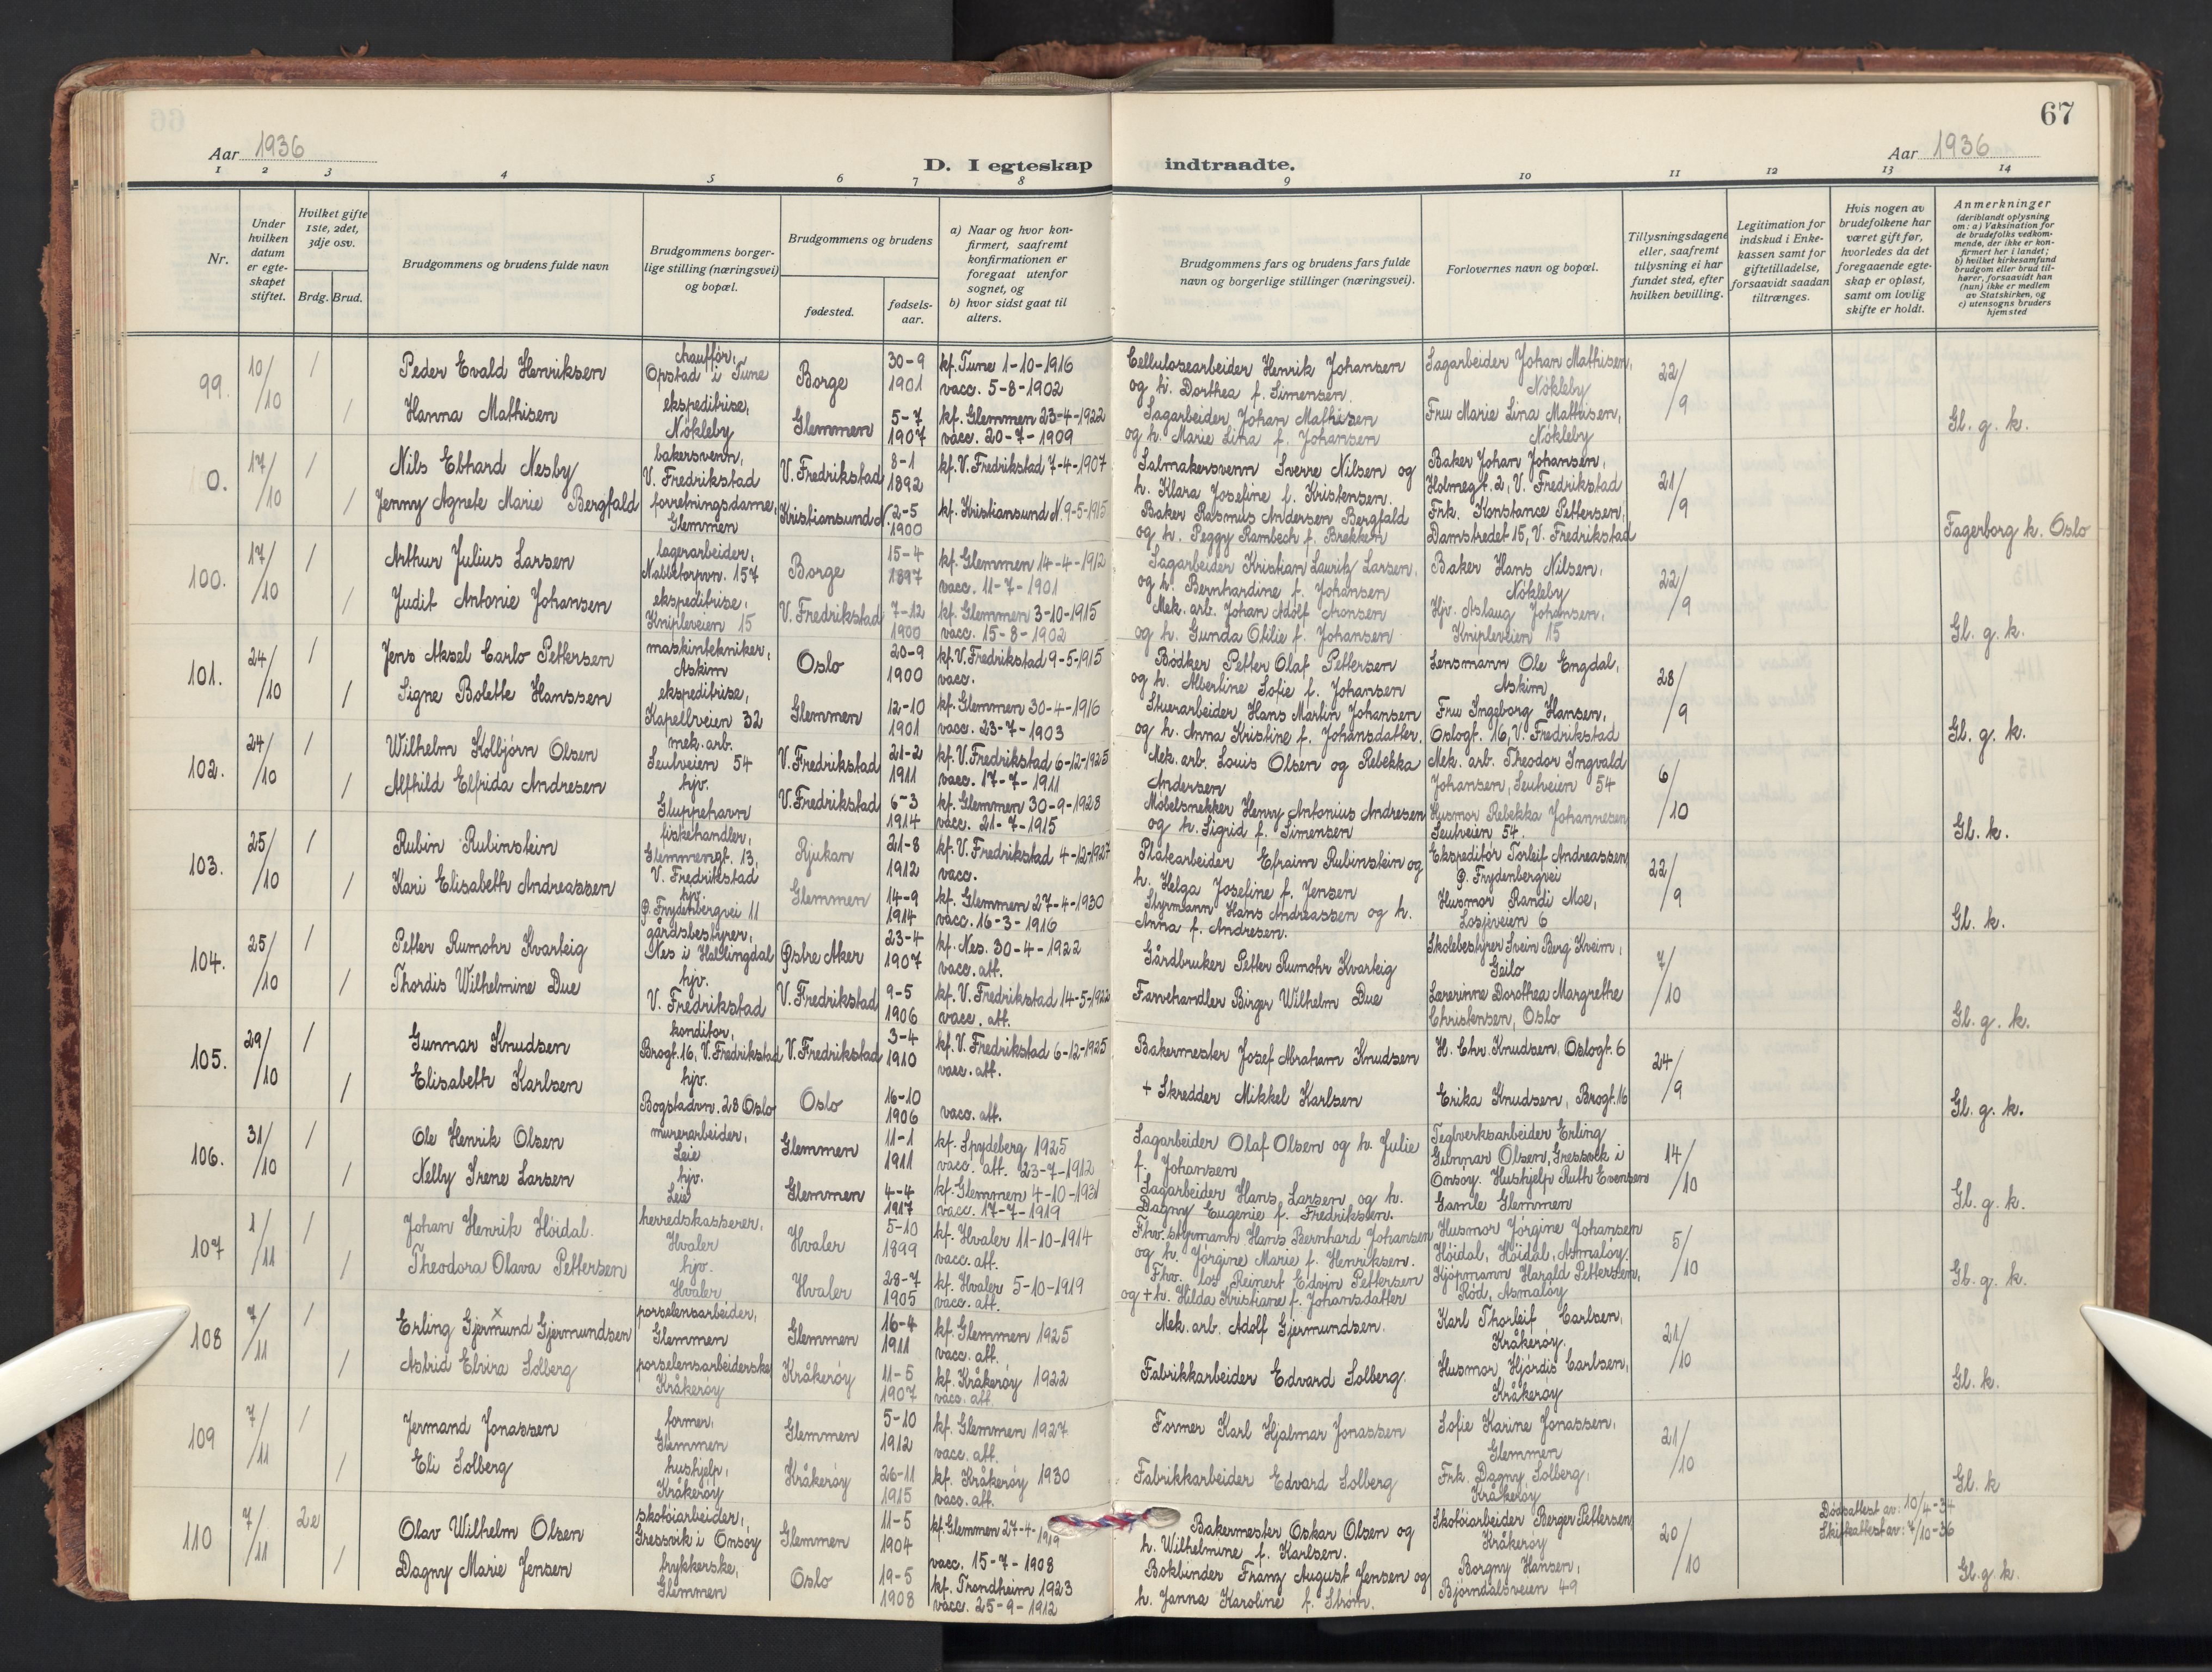 67
Aar 1936
D. I egteskap indtraadte.
Aar 1936
1 2 3 4 5 6 7 8 9 10 11 12 13 14
Nr.
Under hvilken datum er egteskapet stiftet.
Hvilket gifte 1ste, 2det, 3dje osv.
Brdg. Brud.
Brudgommens og brudens fulde navn
Brudgommens borgerlige stilling (næringsvei) og bopæl.
Brudgommens og brudens
fødested.
fødselsaar.
a) Naar og hvor konfirmert, saafremt konfirmationen er foregaat utenfor sognet, og
b) hvor sidst gaat til alters.
Brudgommens fars og brudens fars fulde navn og borgerlige stillinger (næringsvei).
Forlovernes navn og bopæl.
Tillysningsdagene eller, saafremt tillysning ei har fundet sted, efter hvilken bevilling.
Legitimation for indskud i Enkekassen samt for giftetilladelse, forsaavidt saadan tiltrænges.
Hvis nogen av brudefolkene har været gift før, hvorledes da det foregaaende egteskap er opløst, samt om lovlig skifte er holdt.
Anmerkninger
(deriblandt oplysning om: a) Vaksination for de brudefolks vedkommende, der ikke er konfirmert her i landet; b) hvilket kirkesamfund brudgom eller brud tilhører, forsaavidt han (hun) ikke er medlem av Statskirken, og c) utensogns bruders hjemsted
99. 10/10 / Peder Evald Henriksen chauffór, Opstad i Tune Borge 30-9 1901 kf. Tune 1-10-1916 vacc. 5-8-1902 Cellulosearbeider Henrik Johansen og h. Dorthea f. Simensen. Sagarbeider Johan Mathisen, Nókleby 22/9
/ Hanna Mathisen ekspeditrise, Nókleby Glemmen 5-7 1907 kf. Glemmen 23-4-1922 vacc. 20-7-1909 Sagarbeider Johan Mathisen og h. Marie Lina f. Johansen Fru Marie Lina Mathisen, Nókleby Gl. g. k.
0. 17/10 / Nils Ebhard Nesby bakersvenn, V. Fredrikstad V. Fredrikstad 8-1 1892 kf. V. Fredrikstad 7-4-1907 Salmakersvenn Sverre Nilsen og h. Klara Josefine f. Kristensen. Baker Johan Johansen, Holmegt. 2, V. Fredrikstad 21/9
/ Jenny Agnete Marie Bergfald forretningsdame, Glemmen Kristiansund N. 2-5 1900 kf. Kristiansund N. 9-5-1915 Baker Rasmus Andersen Bergfald og h. Peggy Rambech f. Brekken Frk. Konstance Pettersen, Damstredet 15, V. Fredrikstad Fagerborg k. Oslo
100. 17/10 / Arthur Julius Larsen lagerarbeider, Nabbetorpvn. 157 Borge 15-4 1897 kf. Glemmen 14-4-1912 vacc. 11-7-1901 Sagarbeider Kristian Lauritz Larsen, og h. Bernhardine f. Johansen Baker Hans Nilsen, Nókleby 22/9
/ Judit Antonie Johansen ekspeditrise, Knipleveien 15 V. Fredrikstad 7-12 1900 kf. Glemmen 3-10-1915 vacc. 15-8-1902 Mek. arb. Johan Adolf Aronsen og h. Gunda Otilie f. Johansen Hjv. Aslaug Johansen, Knipleveien 15 Gl. g. k.
101. 24/10 / Jens Aksel Carlo Pettersen maskintekniker, Askim Oslo 20-9 1900 kf. V. Fredrikstad 9-5-1915 vacc. Bódker Petter Olaf Pettersen og h. Albertine Sofie f. Johansen Lensmann Ole Engdal, Askim 28/9
/ Signe Bolette Hanssen ekspeditrise, Kapellveien 32 Glemmen 12-10 1901 kf. Glemmen 30-4-1916 vacc. 23-7-1903 Stuerarbeider Hans Martin Johansen og h. Anna Kristine f. Johansdatter. Fru Ingeborg Hansen, Oslogt. 16, V. Fredrikstad Gl. g. k.
102. 24/10 / Wilhelm Kolbjórn Olsen mek. arb. Leutveien 54 V. Fredrikstad 21-2 1911 kf. V. Fredrikstad 6-12-1925 vacc. 17-7-1911 Mek. arb. Louis Olsen og Rebekka Andersen Mek. arb. Theodor Ingvald Johansen, Leutveien 54 6/10
/ Alfhild Elfrida Andresen hjv. Gluppehavn V. Fredrikstad 6-3 1914 kf. Glemmen 30-9-1928 vacc. 21-7-1915 Móbelsnekker Henry Antonius Andresen og h. Sigrid f. Simensen Husmor Rebekka Johannesen Leutveien 54. Gl. k.
103. 25/10 / Rubin Rubinstein fiskehandler, Glemmengt. 13, V. Fredrikstad Rjukan 21-8 1912 kf. V. Fredrikstad 4-12-1927 vacc. Platearbeider Efraim Rubinstein og h. Helga Josefine f. Jensen Ekspeditór Torleif Andreassen, P. Frydenbergvei 22/9
/ Kari Elisabeth Andreassen hjv. P. Frydenbergvei 11 Glemmen 14-9 1914 kf. Glemmen 27-4-1930 vacc. 16-3-1916 Styrmann Hans Andreassen og h. Anna f. Andresen. Husmor Randi Moe, Losjeveien 6 Gl. k.
104. 25/10 / Petter Rumohr Kvarteig gårdsbestyrer, Nes i Hallingdal Østre Aker 23-4 1907 kf. Nes. 30-4-1922 vacc. att. Gårdbruker Petter Rumohr Kvarteig Skolebestyrer Svein Berg Kveim, Geilo 7/10
/ Thordis Wilhelmine Due hjv. V. Fredrikstad V. Fredrikstad 9-5 1906 kf. V. Fredrikstad 14-5-1922 vacc. att. Farvehandler Birger Wilhelm Due Lærerinne Dorothea Margrethe Christensen, Oslo Gl. g. k.
105. 29/10 / Gunnar Knudsen konditor, Brogt. 16, V. Fredrikstad V. Fredrikstad 3-4 1910 kf. V. Fredrikstad 6-12-1925 vacc. att. Bakermester Josef Abraham Knudsen H. Chr. Knudsen, Oslogt. 6 24/9
/ Elisabeth Karlsen hjv. Bogstadvn. 28 Oslo Oslo 16-10 1906 vacc. att. + Skredder Mikkel Karlsen Erika Knudsen, Brogt. 16 Gl. g. k.
106. 31/10 / Ole Henrik Olsen murerarbeider, Leie Glemmen 11-1 1911 kf. Spydeberg 1925 vacc. att. 23-7-1912 Sagarbeider Olaf Olsen og h. Julie f. Johansen Teglverksarbeider Erling Gunnar Olsen, Gressvik i Onsóy. 14/10
/ Nelly Irene Larsen hjv. Leie Glemmen 4-4 1917 kf. Glemmen 4-10-1931 vacc. 17-7-1919 Sagarbeider Hans Larsen og h. Dagny Eugenie f. Fredriksen. Hushjelp Ruth Evensen Gamle Glemmen Gl. g. k.
107 1/11 / Johan Henrik Hóidal. herredskasserer, Hvaler Hvaler 5-10 1899 kf. Hvaler 11-10-1914 vacc. att. Fhv. styrmann Hans Bernhard Johansen og h. Jórgine Marie f. Henriksen. Husmor Jórgine Johansen Hóidal, Hóidal, Asmalóy. 5/10
/ Theodora Olava Pettersen hjv. Hvaler Hvaler 28-7 1905 kf. Hvaler 5-10-1919 vacc. att. Fhv. los Reinert Edvin Pettersen og + h. Hilda Kristiane f. Johansdatter Kjópmann Harald Pettersen, Ród, Asmalóy Gl. g. k.
108 7/11 / Erling Gjermund x Gjermundsen porselensarbeider, Glemmen Glemmen 16-4 1911 kf. Glemmen 1925 vacc. att. Mek. arb. Adolf Gjermundsen. Karl Thorleif Carlsen, Kråkeróy. 21/10
/ Astrid Elvira Solberg porselensarbeiderske Kråkeróy Kråkeróy 11-5 1907 kf. Kråkeróy 1922 vacc. att. Fabrikkarbeider Edvard Solberg. Husmor Hjórdis Carlsen, Kråkeróy Gl. k.
109 7/11 / Jermand Jonassen former, Glemmen Glemmen 5-10 1912 kf. Glemmen 1927 vacc. att. Former Karl Hjalmar Jonassen Sofie Karine Jonassen, Glemmen 21/10
/ Eli Solberg hushjelp, Kråkeróy Kråkeróy 26-11 1915 kf. Kråkeróy 1930 vacc. att. Fabrikkarbeider Edvard Solberg Frk. Dagny Solberg, Kråkeróy Gl. k
110 7/11 2e Olav Wilhelm Olsen skotóiarbeider, Gressvik i Onsóy Glemmen 11-5 1904 kf. Glemmen 27-4-1919 vacc. 15-7-1908 Bakermester Oskar Olsen og h. Wilhelmine f. Karlsen. Skotóiarbeider Berger Pettersen Kråkeróy 20/10 Dødsattest av: 10/4-34 Skifteattest av: 7/10-36
/ Dagny Marie Jensen trykkerske, Glemmen Oslo 19-5 1908 kf. Trondheim 1923 vacc. 25-9-1912 Bokbinder Franz August Jensen og h. Janna Karoline f. Stróm. Borgny Hansen, Bjórndalsveien 49 Gl. g. k.